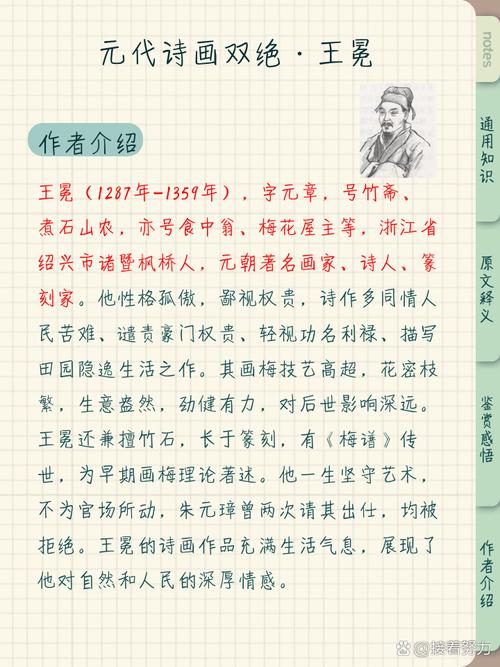 元代诗画双绝·王冕
notes
作者介绍
王冕（1287年-1359年），字元章，号竹斋、
煮石山农，亦号食中翁、梅花屋主等，浙江省
绍兴市诸暨枫桥人，元朝著名画家、诗人、篆
刻家。他性格孤傲，鄙视权贵，诗作多同情人
民苦难、谴责豪门权贵、轻视功名利禄、描写
田园隐逸生活之作。其画梅技艺高超，花密枝
繁，生意盎然，劲健有力，对后世影响深远。
王冕还兼擅竹石，长于篆刻，有《梅谱》传
世，为早期画梅理论著述。他一生坚守艺术，
不为官场所动，朱元璋曾两次请其出仕，均被
拒绝。王冕的诗画作品充满生活气息，展现了
他对自然和人民的深厚情感。
通用知识
原文释义
鉴赏感悟
作者介绍
@接着努力